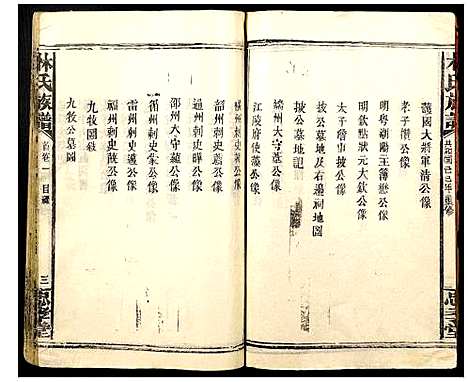 林氏族譜
護國大將軍清公像
孝子攢公像
明粵朝陽主簿懋公像
明欽點狀元大欽公像
太子詹事披公像
披公墓地及右邊祠地圖
披公墓地記
端州大守葦公像
江陵府使藻公像
橫州刺史著公像
韶州刺史薦公像
通州刺史曄公像
邵州大守蘊公像
循州刺史蒙公像
雷州刺史邁公像
福州刺史蔇公像
九牧圖叙
九牧公墓圖
林氏族譜
首卷一
目錄
三
忠孝堂